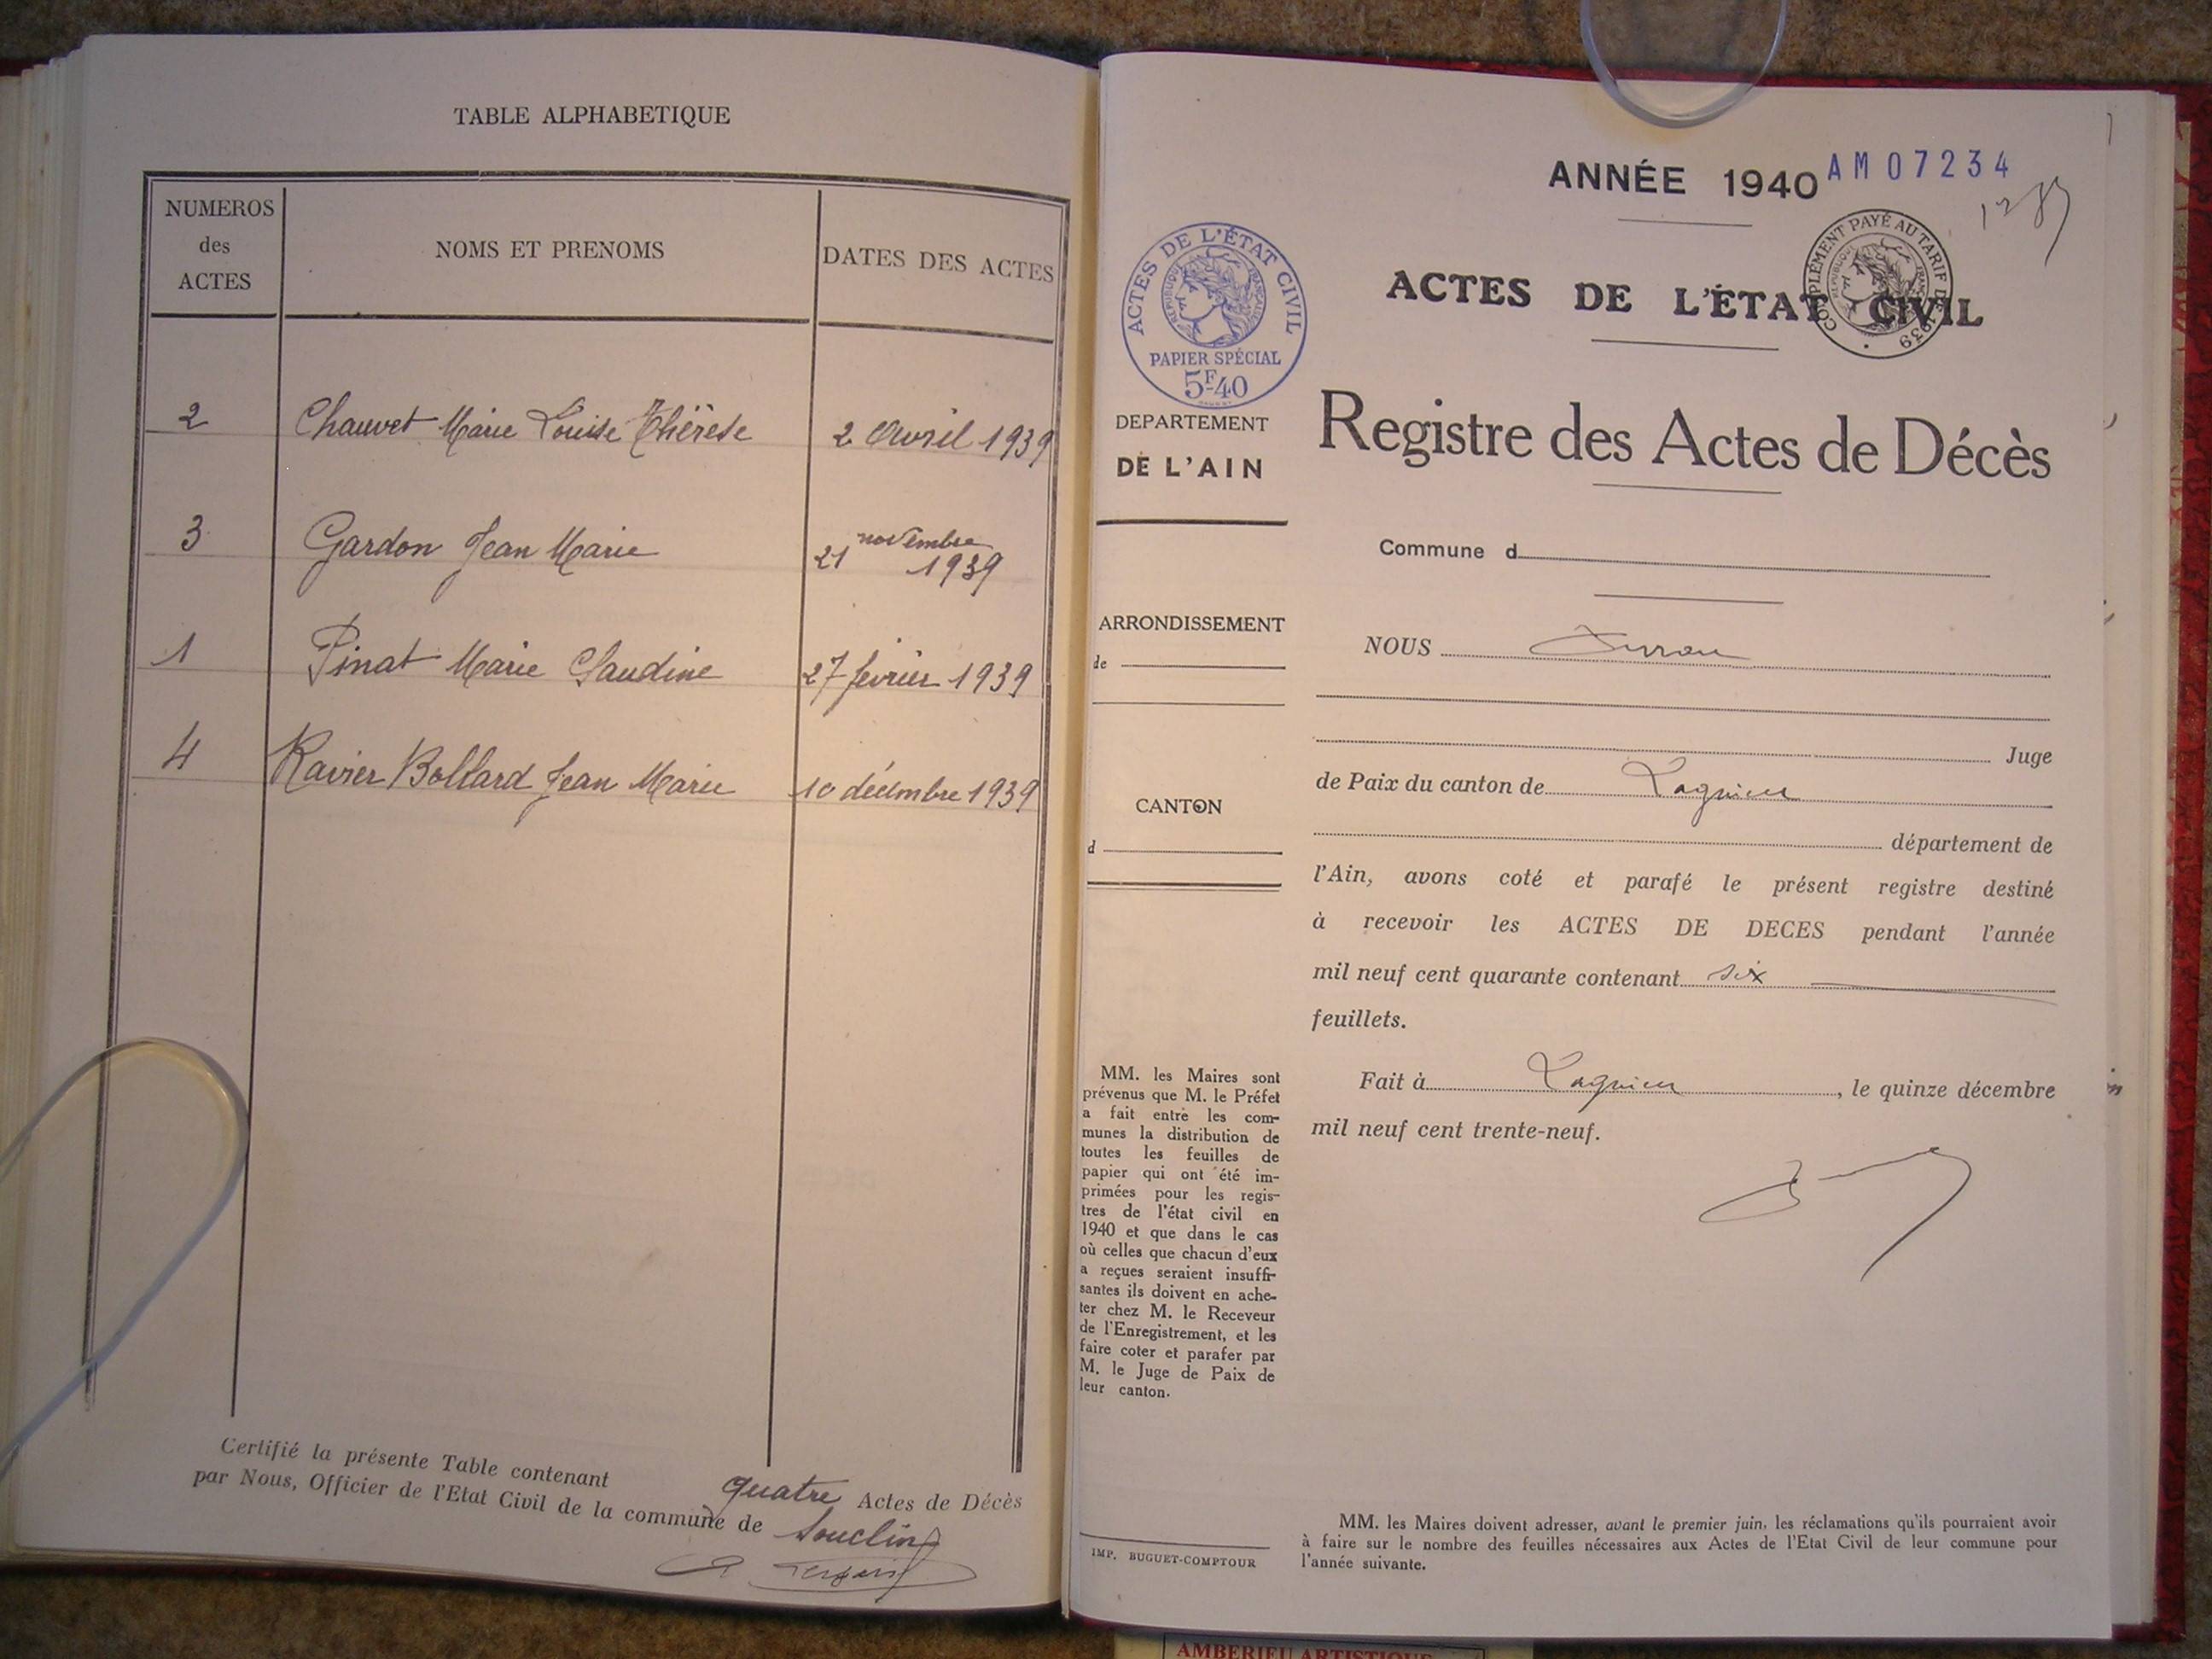 TABLE ALPHABETIQUE
NUMEROS
des
ACTES
NOMS ET PRENOMS
DATES DES ACTES
2 Chauvet Marie Louise Thérèse 2 Avril 1939
3 Gardon Jean Marie 21 novembre 1939
1 Pinat Marie Claudine 27 février 1939
4 Ravier Bollard Jean Marie 10 décembre 1939
Certifié la présente Table contenant quatre Actes de Décès
par Nous, Officier de l'Etat Civil de la commune de Souclin
ANNÉE 1940 AM07234
ACTES DE L'ÉTAT CIVIL
COMPLÉMENT PAYÉ AU TARIF DE 1939
RÉPUBLIQUE FRANÇAISE
ACTES DE L'ÉTAT CIVIL
RÉPUBLIQUE FRANÇAISE
PAPIER SPÉCIAL
5F-40
Registre des Actes de Décès
DEPARTEMENT
DE L'AIN
ARRONDISSEMENT
de
CANTON
d
Commune d
NOUS
Juge
de Paix du canton de Lagnieu
département de
l'Ain, avons coté et parafé le présent registre destiné
à recevoir les ACTES DE DECES pendant l'année
mil neuf cent quarante contenant six
feuillets.
Fait à Lagnieu, le quinze décembre
mil neuf cent trente-neuf.
MM. les Maires sont
prévenus que M. le Préfet
a fait entre les com-
munes la distribution de
toutes les feuilles de
papier qui ont été im-
primées pour les regis-
tres de l'état civil en
1940 et que dans le cas
où celles que chacun d'eux
a reçues seraient insuffi-
santes ils doivent en ache-
ter chez M. le Receveur
de l'Enregistrement, et les
faire coter et parafer par
M. le Juge de Paix de
leur canton.
IMP. BUGUET-COMPTOUR
MM. les Maires doivent adresser, avant le premier juin, les réclamations qu'ils pourraient avoir
à faire sur le nombre des feuilles nécessaires aux Actes de l'Etat Civil de leur commune pour
l'année suivante.
AMBERIEU ARTISTIQUE